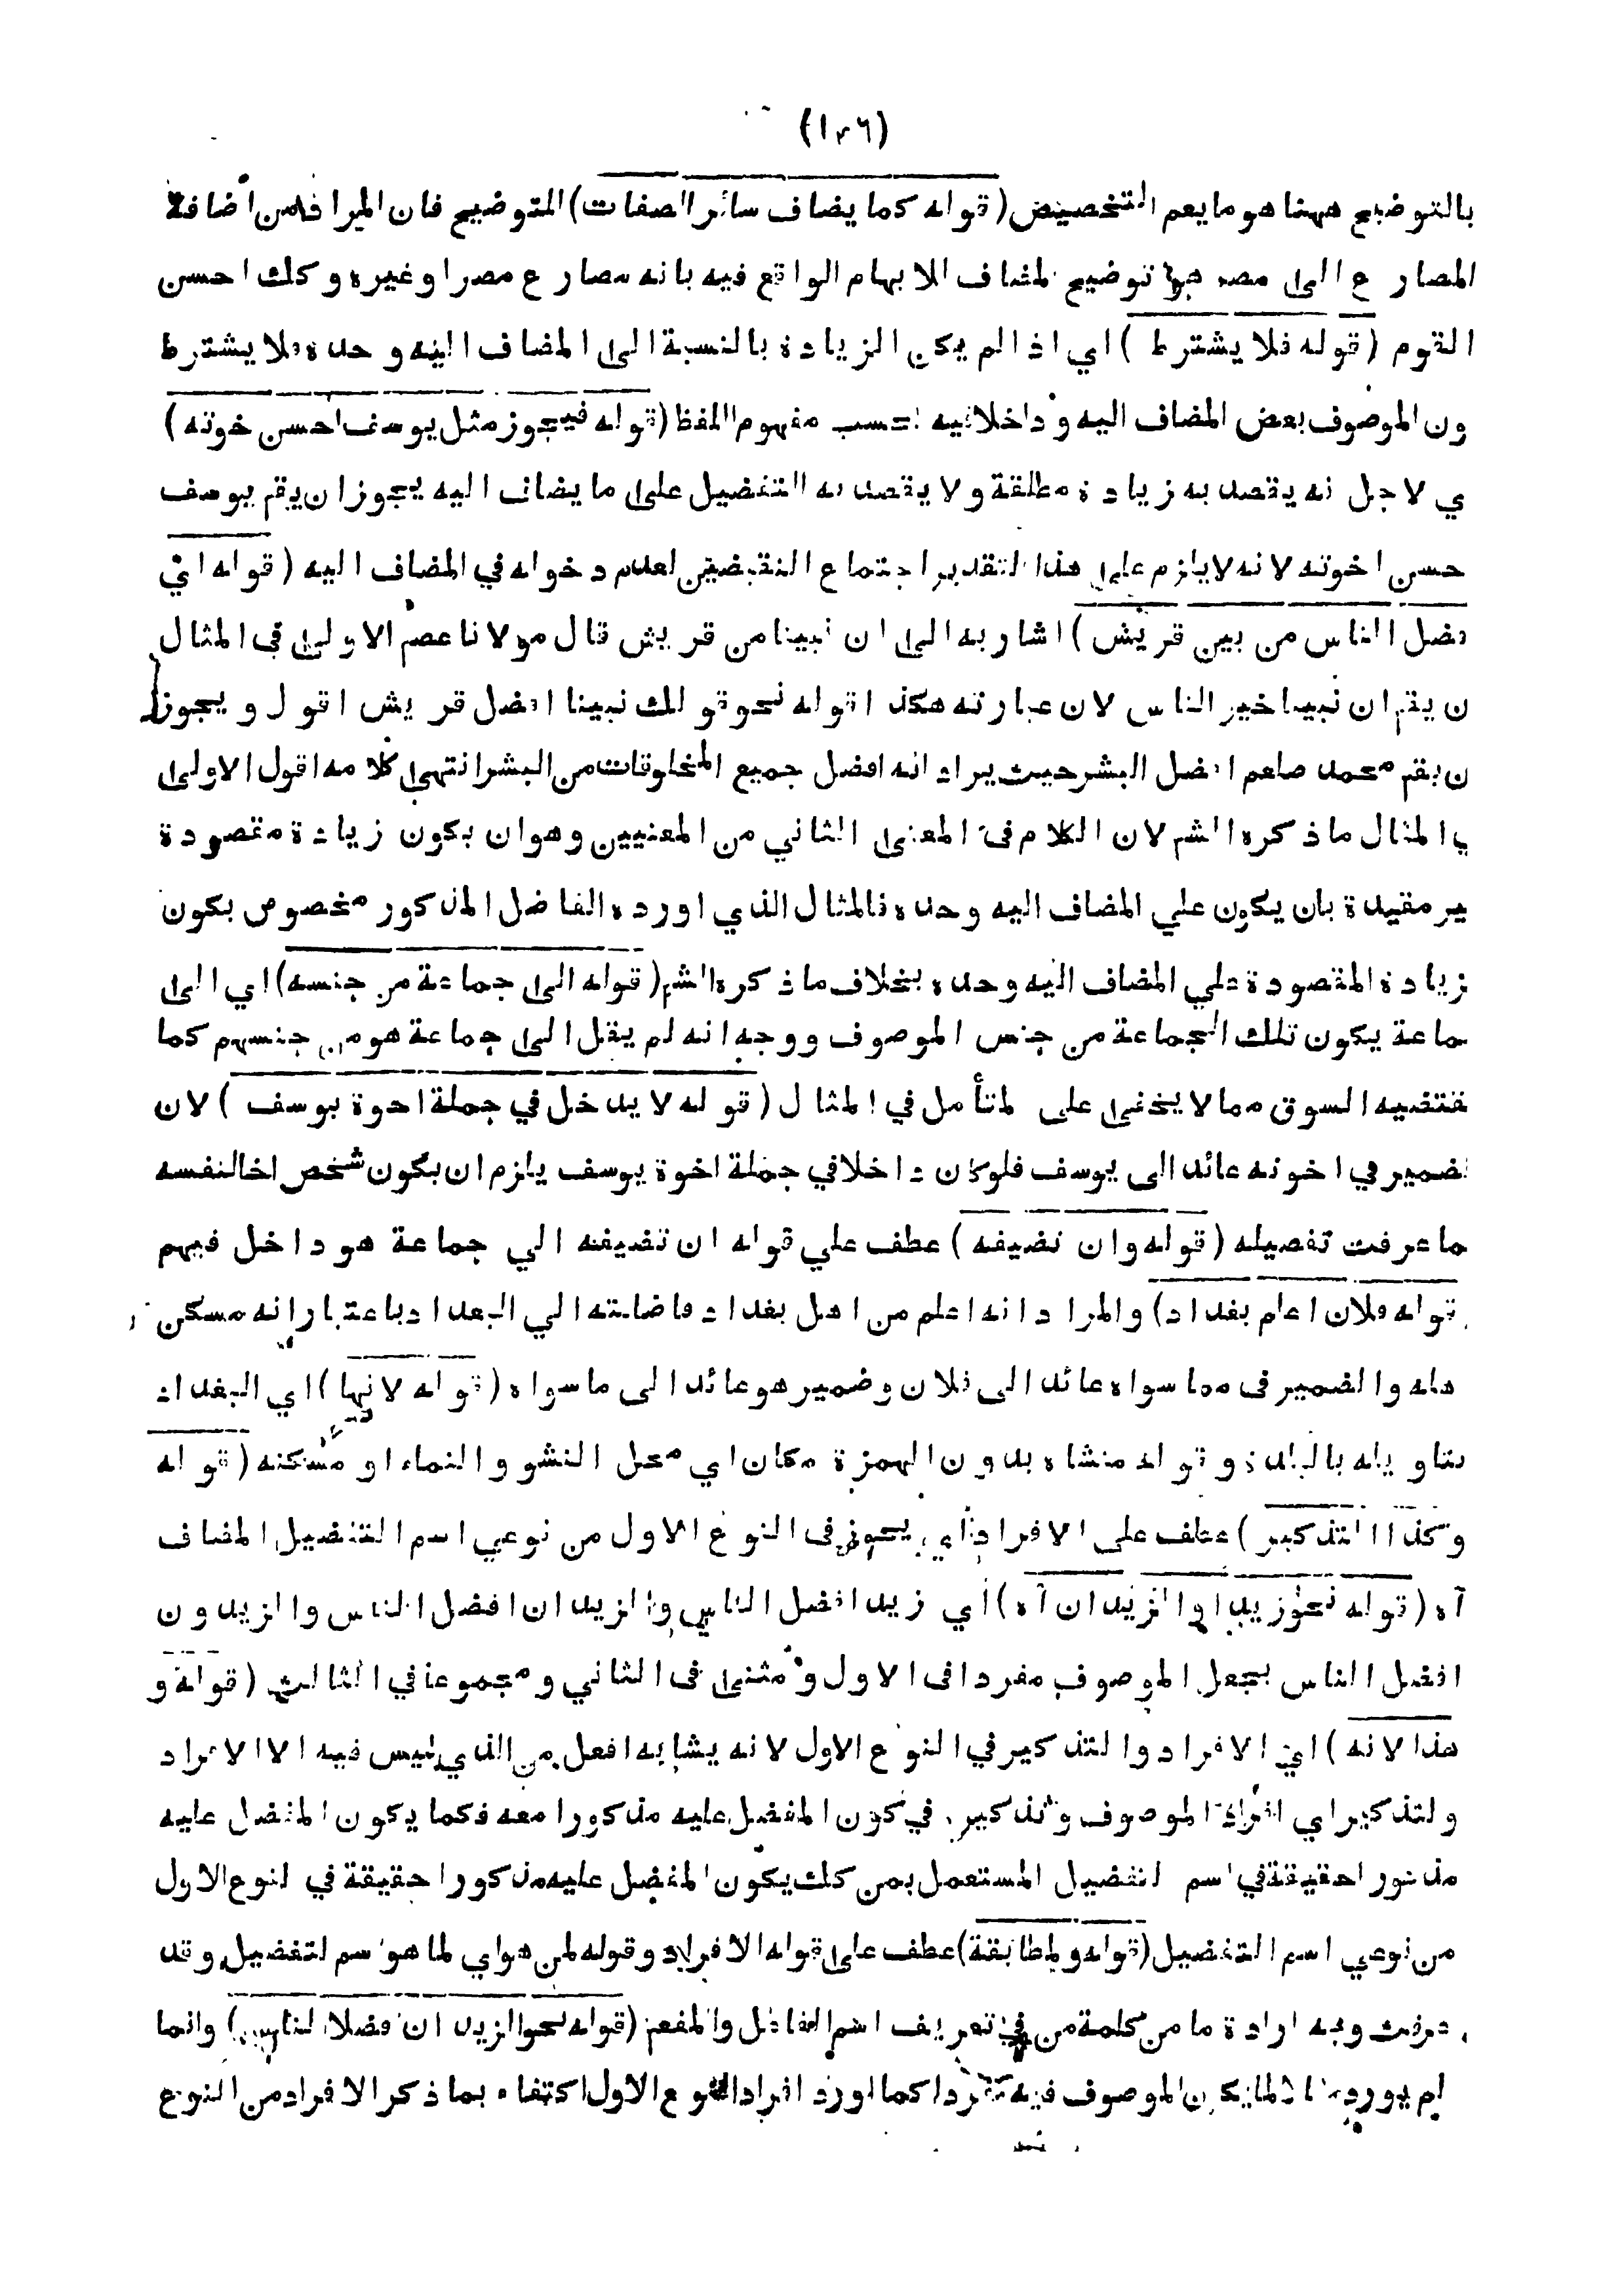 (١٣٦)
بالتوضيح ههنا هو ما يعم التخصيص (قوله كما يضاف سائر الصفات) للتوضيح فان المراد من اضافة
المصارع الى مصر هو توضيح المضاف للابهام الواقع فيه بانه مصارع مصر او غيره وكلك احسن
القوم (قوله فلا يشترط) اي اذا لم يكن الزيادة بالنسبة الى المضاف اليه وحده فلا يشترط
ون الموصوف بعض المضاف اليه و داخلا فيه بحسب مفهوم اللفظ (قوله فيجوز مثل يوسف احسن خوته)
ي لاجل نه يقصد به زيادة مطلقة ولا يقصد به التفضيل على ما يضاف اليه يجوز ان يقم يوسف
حسن اخوته لانه لا يلزم على هذا التقدير اجتماع النقيضين لعدم دخوله في المضاف اليه (قوله اي
فضل الناس من بين قريش) اشار به الى ان نبينا من قريش قال مولانا عصم الاولى فى المثال
ن يقم ان نبينا خير الناس لان عبارته هكذا قوله نحو قولك نبينا افضل قريش اقول و يجوز
ن يقم محمد صلعم افضل البشر حيث يراد انه افضل جميع المخلوقات من البشر انتهى كلامه اقول الاولى
ي المثال ما ذكره الشم لان الكلام فى المعنى الثاني من المعنيين وهو ان يكون زيادة مقصودة
ير مقيدة بان يكون علي المضاف اليه وحده فالمثال الذي اورده الفاضل المذكور مخصوص بكون
زيادة المقصودة علي المضاف اليه وحده بخلاف ما ذكره الشم (قوله الى جماعة من جنسه) اي الى
ماعة يكون تلك الجماعة من جنس الموصوف ووجه انه لم يقل الى جماعة هو من جنسهم كما
قتضيه السوق مما لا يخفى على المتأمل في المثال (قوله لا يدخل في جملة اخوة يوسف) لان
لضمير في اخوته عائد الى يوسف فلو كان داخلا في جملة اخوة يوسف يلزم ان يكون شخص اخا لنفسه
ما عرفت تفصيله (قوله وان تضيفه) عطف علي قوله ان تضيفه الي جماعة هو داخل فيهم
قوله فلان اعلم بغداد) والمراد انه اعلم من اهل بغداد فاضافته الي البغداد باعتبار انه مسكن
هله والضمير فى مما سواه عائد الى فلان وضمير هو عائد الى ما سواه (قوله لانها) اي البغداد
بتاويله بالبلدة وقوله منشاه بدون الهمزة مكان اي محل النشو والنماء او مسكنه (قوله
وكذا التذكير) عطف على الافراد اي يجوز فى النوع الاول من نوعي اسم التفضيل المضاف
آه (قوله نحو زيد او الزيدان آه) اي زيد افضل الناس والزيدان افضل الناس والزيدون
افضل الناس بجعل الموصوف مفردا فى الاول و مثنى فى الثاني و مجموعا في الثالث (قوله و
هذا لانه) اي الافراد والتذكير في النوع الاول لانه يشابه افعل من الذي ليس فيه الا الافراد
ولتذكير اي افراد الموصوف وتذكير، في كون المفضل عليه مذكورا معه فكما يكون المفضل عليه
مذكورا حقيقة في اسم لتفضيل المستعمل بمن كلك يكون المفضل عليه مذكورا حقيقة في لنوع الاول
من نوعي اسم التفضيل (قوله و لمطابقة) عطف على قوله الافراد وقوله لمن هو اي لما هو اسم لتفضيل وقد
عرفت وجه ارادة ما من كلمة من في تعريف اسم الفاعل والمفعم (قوله نحو الزيدان فضلا الناس) وانما
لم يورد مثالا لما يكون الموصوف فيه مفردا كما اورد افراد النوع الاول اكتفاء بما ذكر الافراد من النوع